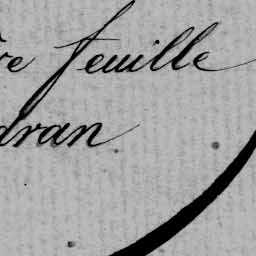 re feuille
dran